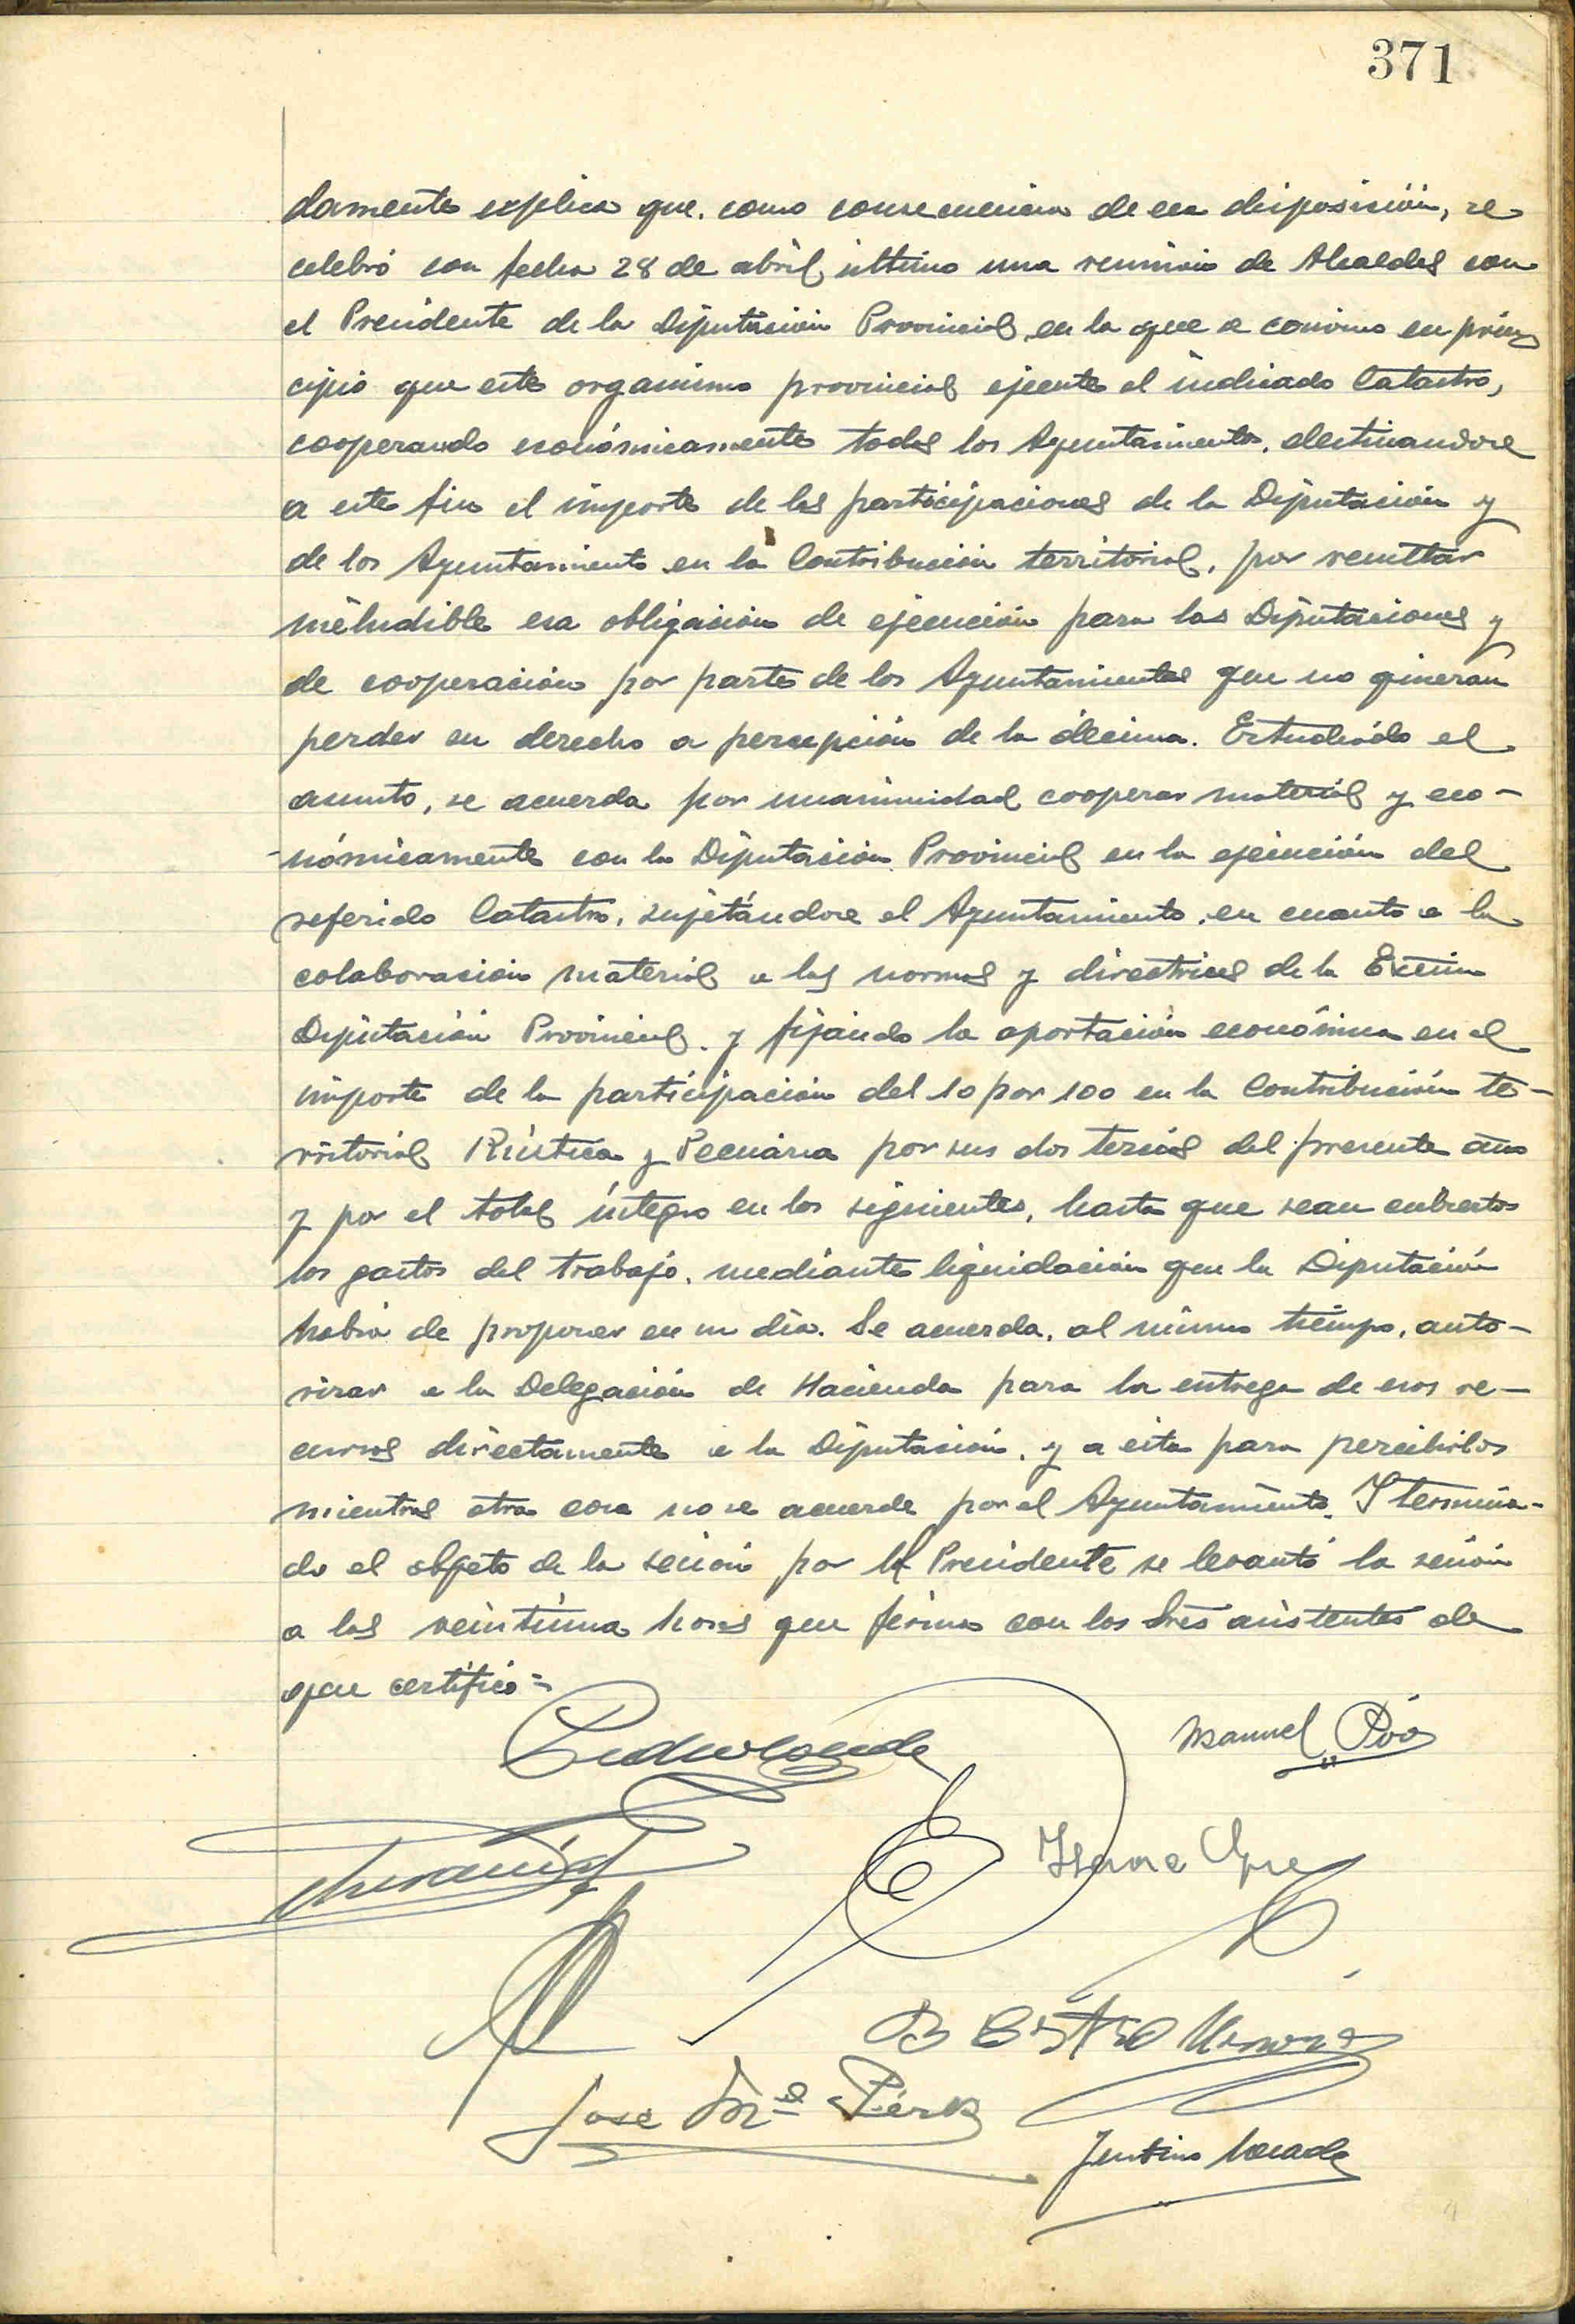 371
damente explica que, como consecuencia de esa disposición, se
celebró con fecha 28 de abril último una reunión de Alcaldes con
el Presidente de la Diputación Provincial, en la que se convino en prin
cipio que este organismo provincial ejecute el indicado Catastro,
cooperando económicamente todos los Ayuntamientos, destinandose
a este fin el importe de las participaciones de la Diputación y
de los Ayuntamiento en la Contribución territorial, por resultar
ineludible esa obligación de ejecución para las Diputaciones y
de cooperación por parte de los Ayuntamientos que no quieran
perder su derecho a percepción de la décima. Estudiado el
asunto, se acuerda por unanimidad cooperar material y eco-
-nómicamente con la Diputación Provincial en la ejecución del
referido Catastro, sujetándose el Ayuntamiento, en cuanto a la
colaboración material a las normas y directrices de la Excma
Diputación Provincial, y fijando la aportación económica en el
importe de la participación del 10 por 100 en la Contribución te-
rritorial Rústica y Pecuaria por sus dos tercios del presente año
y por el total íntegro en los siguientes, hasta que sean cubiertos
los gastos del trabajo, mediante liquidación que la Diputación
habrá de proponer en su día. Se acuerda, al mismo tiempo, auto-
rizar a la Delegación de Hacienda para la entrega de esos re-
cursos directamente a la Diputación, y a esta para percibirlos
mientras otra cosa no se acuerde por el Ayuntamiento. Y termina-
do el objeto de la sesión por el Presidente se levantó la sesión
a las veintiuna horas que firma con los Sres asistentes de
que certifico =
Manuel Póo
José Mª Pérez
Justino